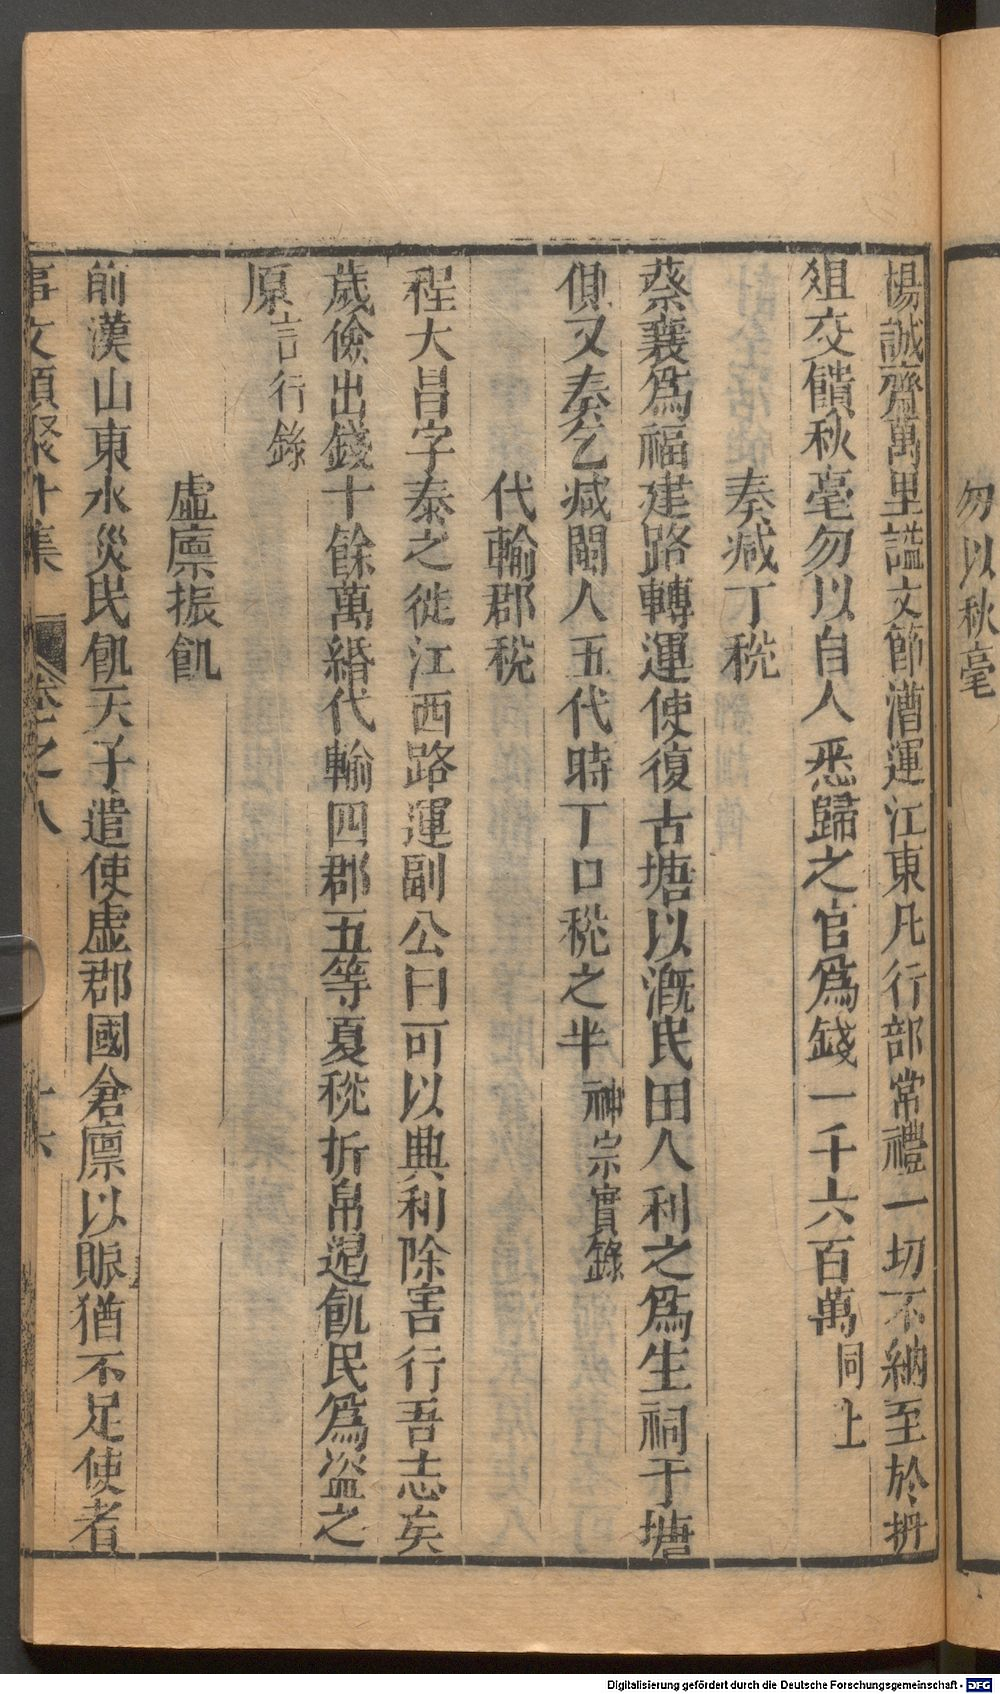 勿以秋毫
楊誠齋萬里謚文節漕運江東凡行部常禮一切不納至於折
俎交饋秋毫勿以自入悉歸之官爲錢一千六百萬同上
奏减丁稅
蔡襄爲福建路轉運使復古塘以溉民田人利之爲生祠于塘
側又奏乞减閩人五代時丁口稅之半神宗實錄
代輸郡稅
程大昌字泰之徙江西路運副公曰可以興利除害行吾志矣
歲儉出錢十餘萬緡代輸四郡五等夏稅折帛遏飢民爲盗之
原言行錄
虛廩振飢
前漢山東水災民飢天子遣使虛郡國倉廩以賑猶不足使者
事文類聚 集 卷之八 十六
Digitalisierung gefördert durch die Deutsche Forschungsgemeinschaft - DFG